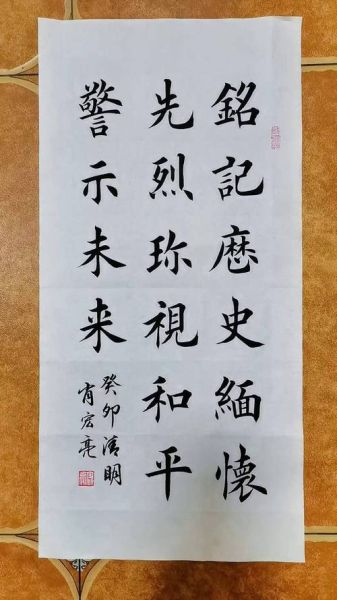 銘記歷史緬懷
先烈珎視和平
警示未来
癸卯清明
肖宏亮